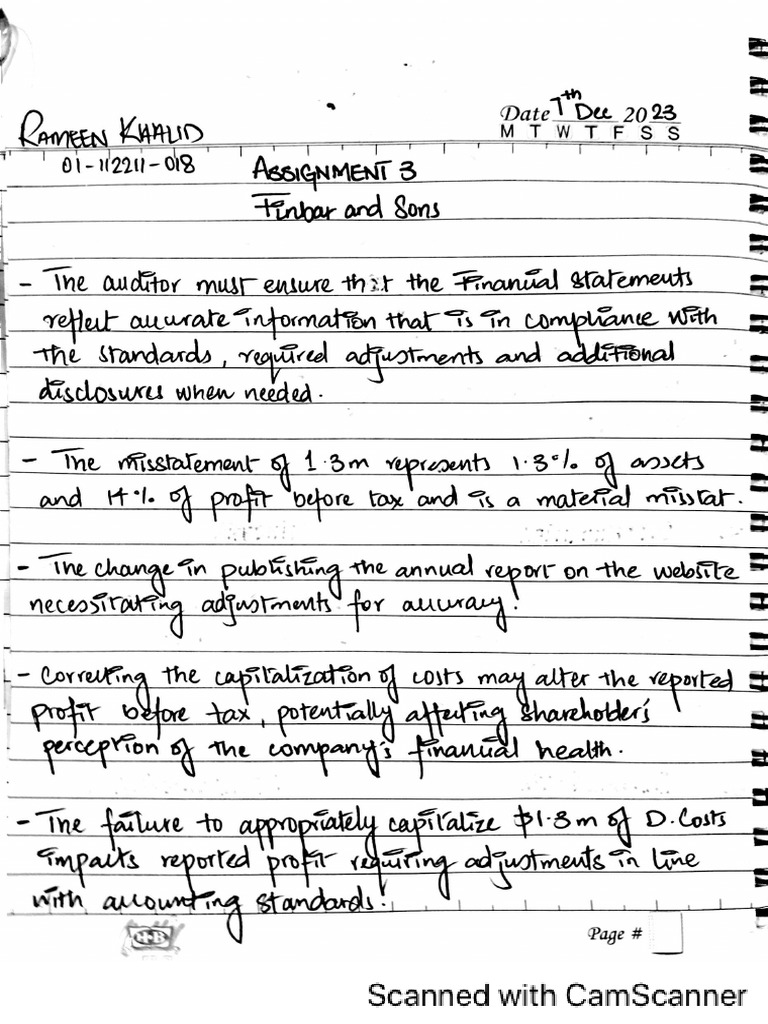 Date 7th Dec 2023
M T W T F S S
RAMEEN KHALID
01-112211-018
ASSIGNMENT 3
Finbar and Sons
- The auditor must ensure that the Financial statements
reflect accurate information that is in compliance with
the standards, required adjustments and additional
disclosures when needed.
- The misstatement of 1.3m represents 1.3% of assets
and 14% of profit before tax and is a material misstat.
- The change in publishing the annual report on the website
necessitating adjustments for accuracy.
- Correcting the capitalization of costs may alter the reported
profit before tax, potentially affecting shareholder's
perception of the company's financial health.
- The failure to appropriately capitalize $1.3m of D. Costs
impacts reported profit requiring adjustments in line
with accounting standards.
Page #
Scanned with CamScanner